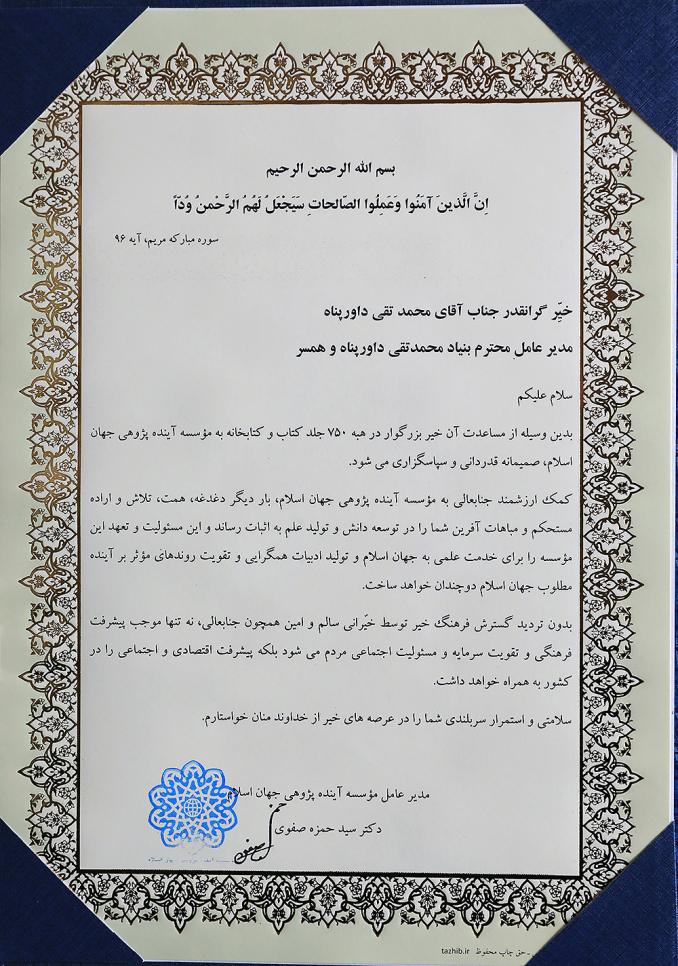 بسم الله الرحمن الرحیم
اِنَّ الَّذینَ آمَنُوا وَعَمِلُوا الصّالحاتِ سَیَجْعَلُ لَهُمُ الرَّحْمنُ وُدّاً
سوره مبارکه مریم، آیه ۹۶
خیِّر گرانقدر جناب آقای محمد تقی داورپناه
مدیر عاملِ محترم بنیاد محمدتقی داورپناه و همسر
سلام علیکم
بدین وسیله از مساعدت آن خیر بزرگوار در هبه ۷۵۰ جلد کتاب و کتابخانه به مؤسسه آینده پژوهی جهان
اسلام، صمیمانه قدردانی و سپاسگزاری می شود.
کمک ارزشمند جنابعالی به مؤسسه آینده پژوهی جهان اسلام، بار دیگر دغدغه، همت، تلاش و اراده
مستحکم و مباهات آفرین شما را در توسعه دانش و تولید علم به اثبات رساند و این مسئولیت و تعهد این
مؤسسه را برای خدمت علمی به جهان اسلام و تولید ادبیات همگرایی و تقویت روندهای مؤثر بر آینده
مطلوب جهان اسلام دوچندان خواهد ساخت.
بدون تردید گسترش فرهنگ خیر توسط خیّرانی سالم و امین همچون جنابعالی، نه تنها موجب پیشرفت
فرهنگی و تقویت سرمایه و مسئولیت اجتماعی مردم می شود بلکه پیشرفت اقتصادی و اجتماعی را در
کشور به همراه خواهد داشت.
سلامتی و استمرار سربلندی شما را در عرصه های خیر از خداوند منان خواستارم.
مدیر عامل مؤسسه آینده پژوهی جهان اسلام
دکتر سید حمزه صفوی
حق چاپ محفوظ tazhib.ir